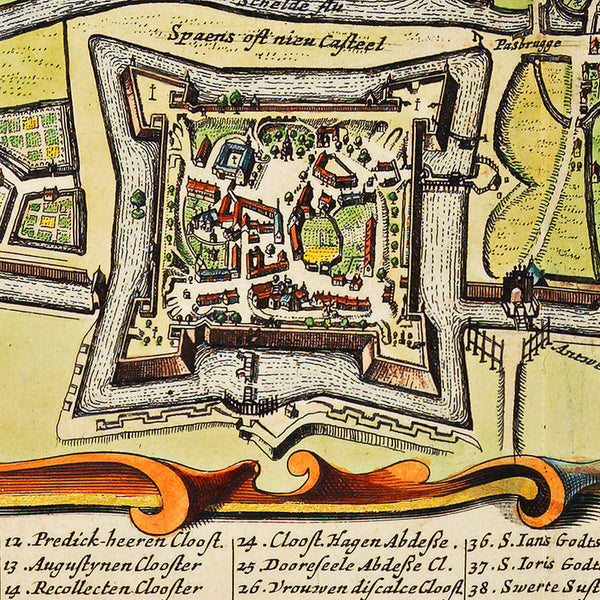 Schelde flu
Spaens oft nieu Casteel
Pasbrugge
Antwe
12. Predick-heeren Cloost.
13. Augustynen Clooster
14. Recollecten Clooster
24. Cloost. Hagen Abdeße.
25. Dooreseele Abdeße Cl.
26. Vrouwen discalce Cloost.
36. S. Ians Godts
37. S. Ioris Godts
38. Swerte Sust